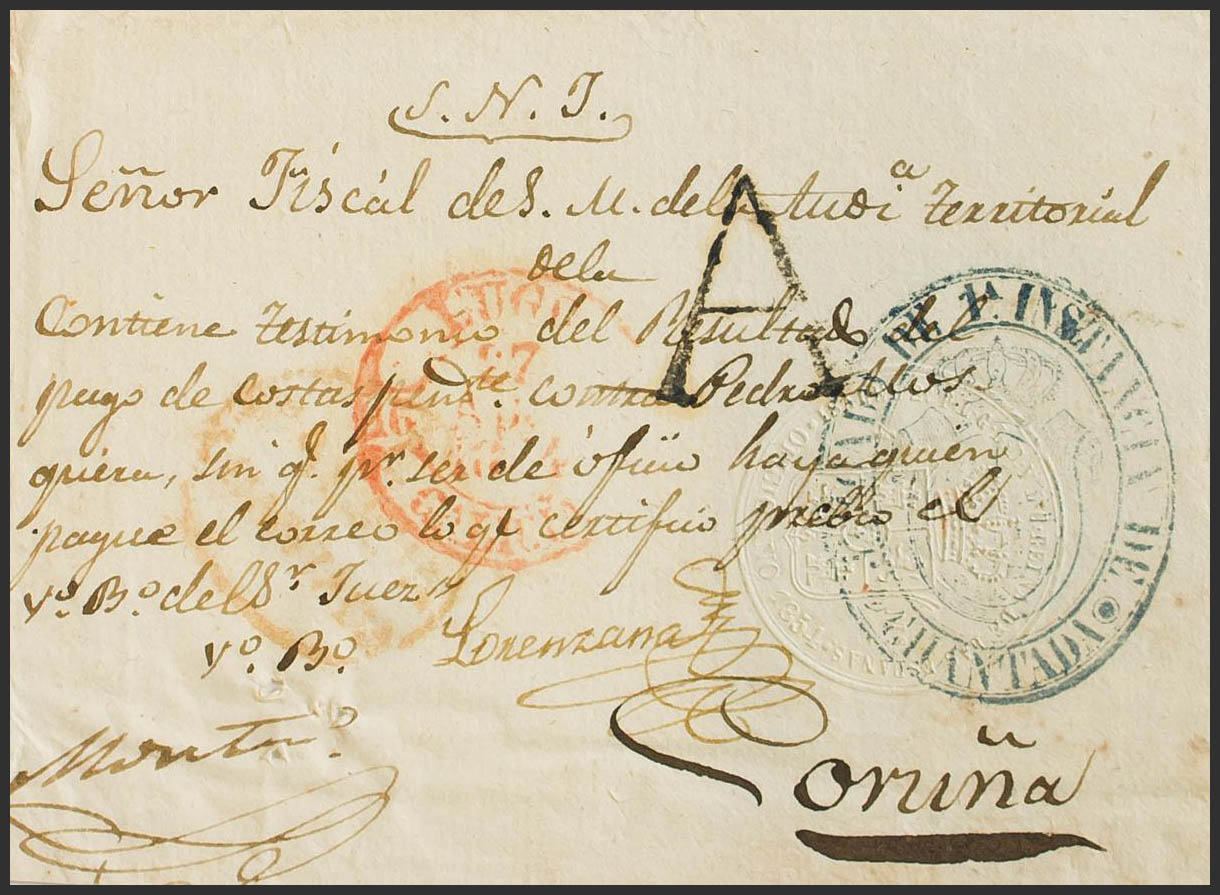 S. N. J.
Señor Fiscál de S. M. de la Audiª Territorial
de la
Contiene testimonio del Resultado del
pago de costas pendte. contra Pedro
quiera, sin q. pr. ser de óficio haya quien
pague el correo lo q certifico prebio el
Vº. Bº. del Sr Juez
Vº. Bº.
Lorenzana
Coruña
A
LUGO
DE 1ª INSTANCIA DE CHANTADA
1851